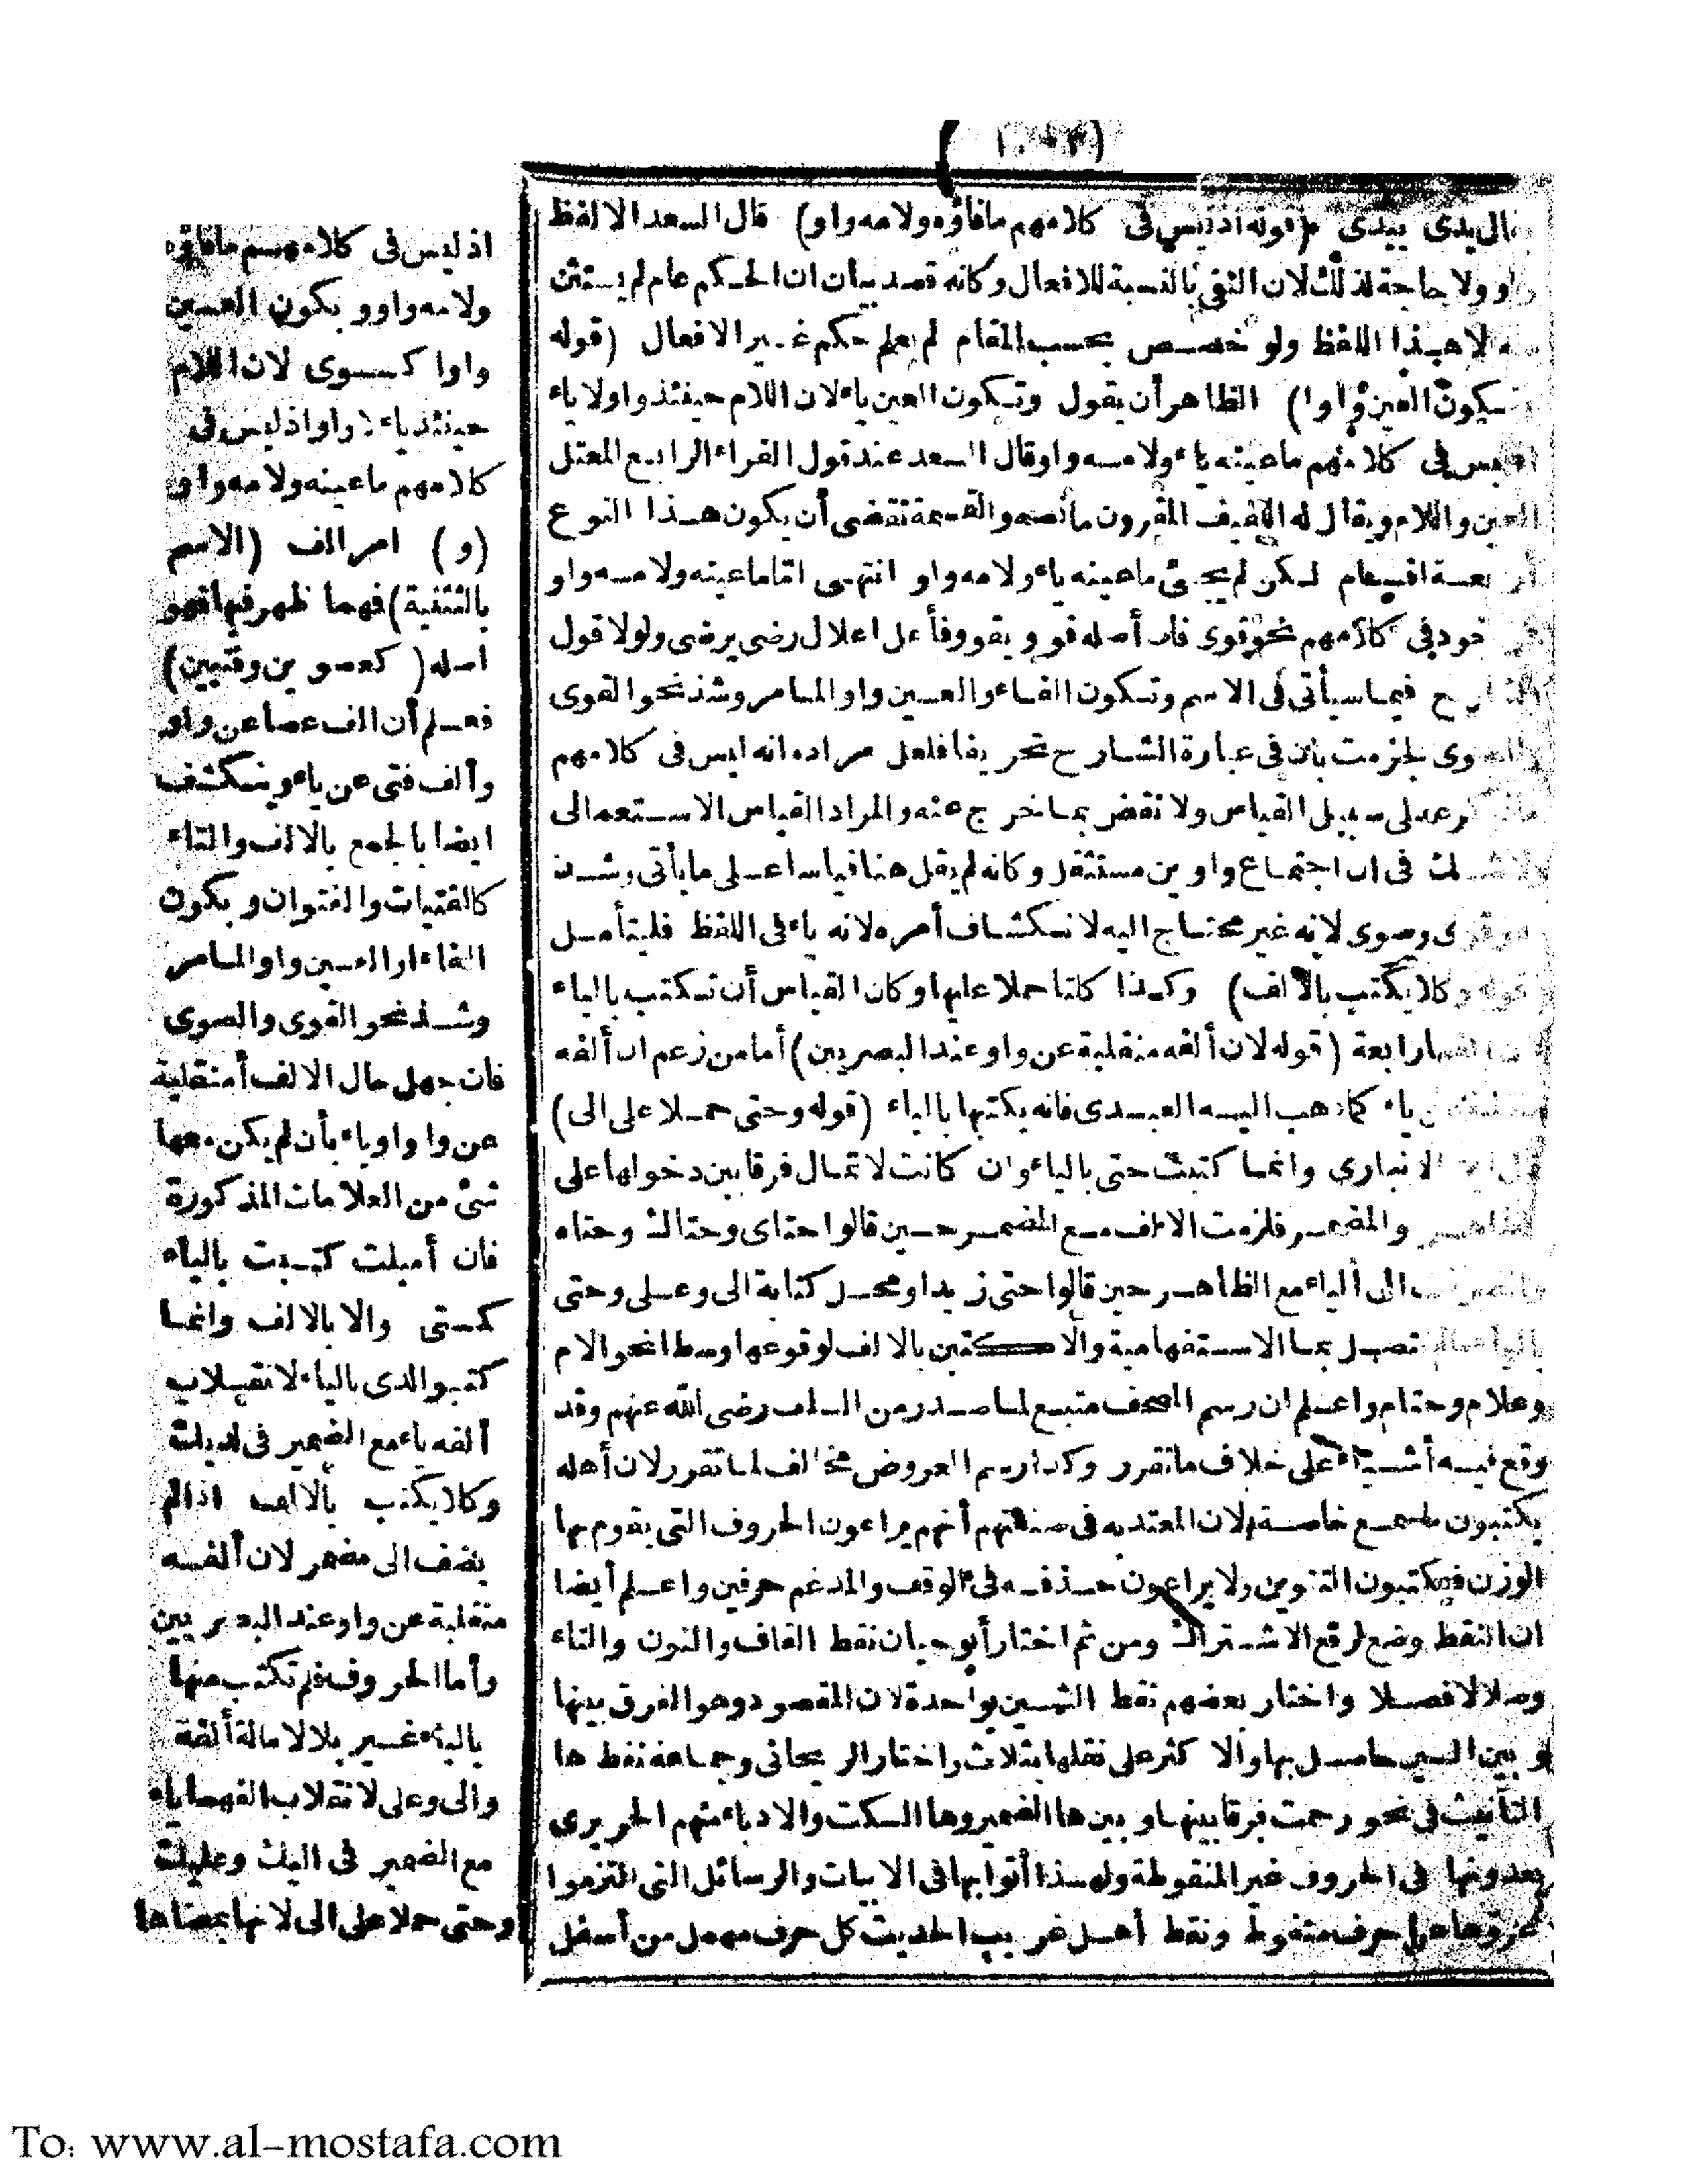 يدى بيدى (قوله اذ ليس فى كلامهم ما فاؤه ولامه واو) قال السعد الا لفظ
واو ولا حاجة لذلك لان النفى بالنسبة للافعال وكانه قصد بيان ان الحكم عام لم يستثن
الا هذا اللفظ ولو خصص بحسب المقام لم يعلم حكم غير الافعال (قوله
وتكون العين واوا) الظاهر أن يقول وتكون العين ياء لان اللام حينئذ واو لا ياء
اذ ليس فى كلامهم ما عينه ياء ولامه واو قال السعد عند قول الفراء الرابع المعتل
العين واللام ويقال له اللفيف المقرون ما نصه والقسمة تقتضى أن يكون هذا النوع
أربعة اقسام لكن لم يجئ ما عينه ياء ولامه واو انتهى اما ما عينه ولامه واو
فى كلامهم نحو قوى فان أصله قوو يقوو فأعل اعلال رضى يرضى ولولا قول
الشارح فيما سيأتى فى الاسم وتكون الفاء والعين واو لما مر وشذ نحو القوى
والصوى لجزمت بأن فى عبارة الشارح تحريفا فلعل مراده انه ليس فى كلامهم
على سبيل القياس ولا نقض بما خرج عنه والمراد القياس الاستعمالى
ولا شك فى ان اجتماع واوين مستثقل وكانه لم يقل هنا قياسا على ما يأتى وشذ
قوى وصوى لانه غير محتاج اليه لانكشاف أمره لانه ياء فى اللفظ فليتأمل
(قوله وكلا يكتب بالالف) وكذا كلتا حملا عليها وكان القياس أن تكتب بالياء
رابعة (قوله لان ألفه منقلبة عن واو عند البصريين) أما من زعم ان ألفه
ياء كما ذهب اليه العبدى فانه يكتبها بالياء (قوله وحتى حملا على الى)
الانبارى وانما كتبت حتى بالياء وان كانت لا تمال فرقا بين دخولها على
الظاهر والمضمر فلزمت الالف مع المضمر حين قالوا حتاى وحتاك وحتاه
الى الياء مع الظاهر حين قالوا حتى زيد او محل كتابة الى وعلى وحتى
بالياء ما لم تتصل بما الاستفهامية والا كتبن بالالف لوقوعها وسطا نحو الام
وعلام وحتام واعلم ان رسم المصحف متبع لما صدر من السلف رضى الله عنهم وقد
وقع فيه أشياء على خلاف ما تقرر وكذا رسم العروض مخالف لما تقرر لان أهله
يكتبون خاصة لان المعتد به فى صنعتهم أنهم يراعون الحروف التى يقوم بها
الوزن فيكتبون التنوين ولا يراعون حذفه فى الوقف والمدغم حرفين واعلم أيضا
ان النقط وضع لرفع الاشتراك ومن ثم اختار أبو حيان نقط القاف والنون والتاء
وصلا لا فصلا واختار بعضهم نقط الشين بواحدة لان المقصود وهو الفرق بينها
و بين السين حاصل بها والاكثر على نقلها بثلاث واختار الريحانى وجماعة نقط ها
التأنيث فى نحو رحمت فرقا بينها و بين ها الضمير وها السكت والادباء منهم الحريرى
يعدونها فى الحروف غير المنقوطة ولهذا أتوا بها فى الابيات والرسائل التى التزموا
حرف منقوط ونقط أهل غريب الحديث كل حرف مهمل من أسفل
اذ ليس فى كلامهم ما فاؤه
ولامه واو و يكون العين
واوا كسوى لان اللام
حينئذ ياء لا واو اذ ليس فى
كلامهم ما عينه ولامه واو
(و) امر الف (الاسم
بالتثنية) فهما ظهر فيها فهو
أصله (كعصوين وفتيين)
فعلم أن الف عصا عن واو
وألف فتى عن ياء وينكشف
ايضا بالجمع بالالف والتاء
كالفتيات والفتوان و بكون
الفاء او العين واو لما مر
وشذ نحو القوى والصوى
فان جهل حال الالف أمنقلبة
عن واو او ياء بأن لم يكن معها
شئ من العلامات المذكورة
فان أميلت كتبت بالياء
كمتى والا بالالف وانما
كتبوا لدى بالياء لانقلاب
ألفه ياء مع الضمير فى لديك
وكلا يكتب بالالف اذا لم
يضف الى مضمر لان ألفه
منقلبة عن واو عند البصريين
وأما الحروف فلم تكتب منها
بالياء غير بلا لامالة ألفه
والى وعلى لانقلاب الفهما ياء
مع الضمير فى اليك وعليك
وحتى حملا على الى لانها بمعناها
To: www.al-mostafa.com